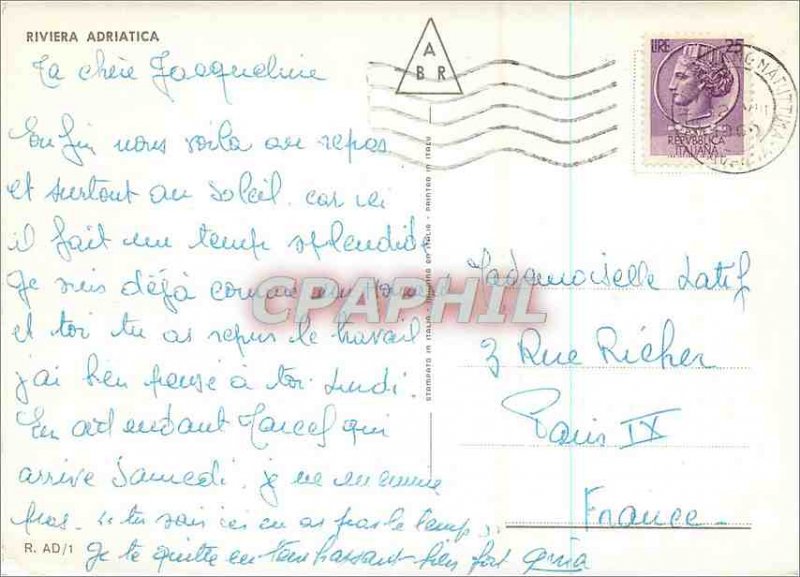 RIVIERA ADRIATICA
Ma chère Jacqueline
Enfin nous voila au repos
et surtout au soleil car ici
il fait un temps splendide
Je suis déjà comme un
et toi tu as repris le travail
j'ai bien pensé à toi Lundi.
En attendant Marcel qui
arrive Samedi. je ne m'ennuie
pas. tu sais ici on as pas le temps
Je te quitte en t'embrassant bien fort
R. AD/1
STAMPATO IN ITALIA - IMPRIMÉ EN ITALIE - PRINTED IN ITALY
A
B R
LIRE 25
REPVBBLICA
ITALIANA
Mademoiselle Latif
3 Rue Richer
Paris IX
France
CPAPHIL